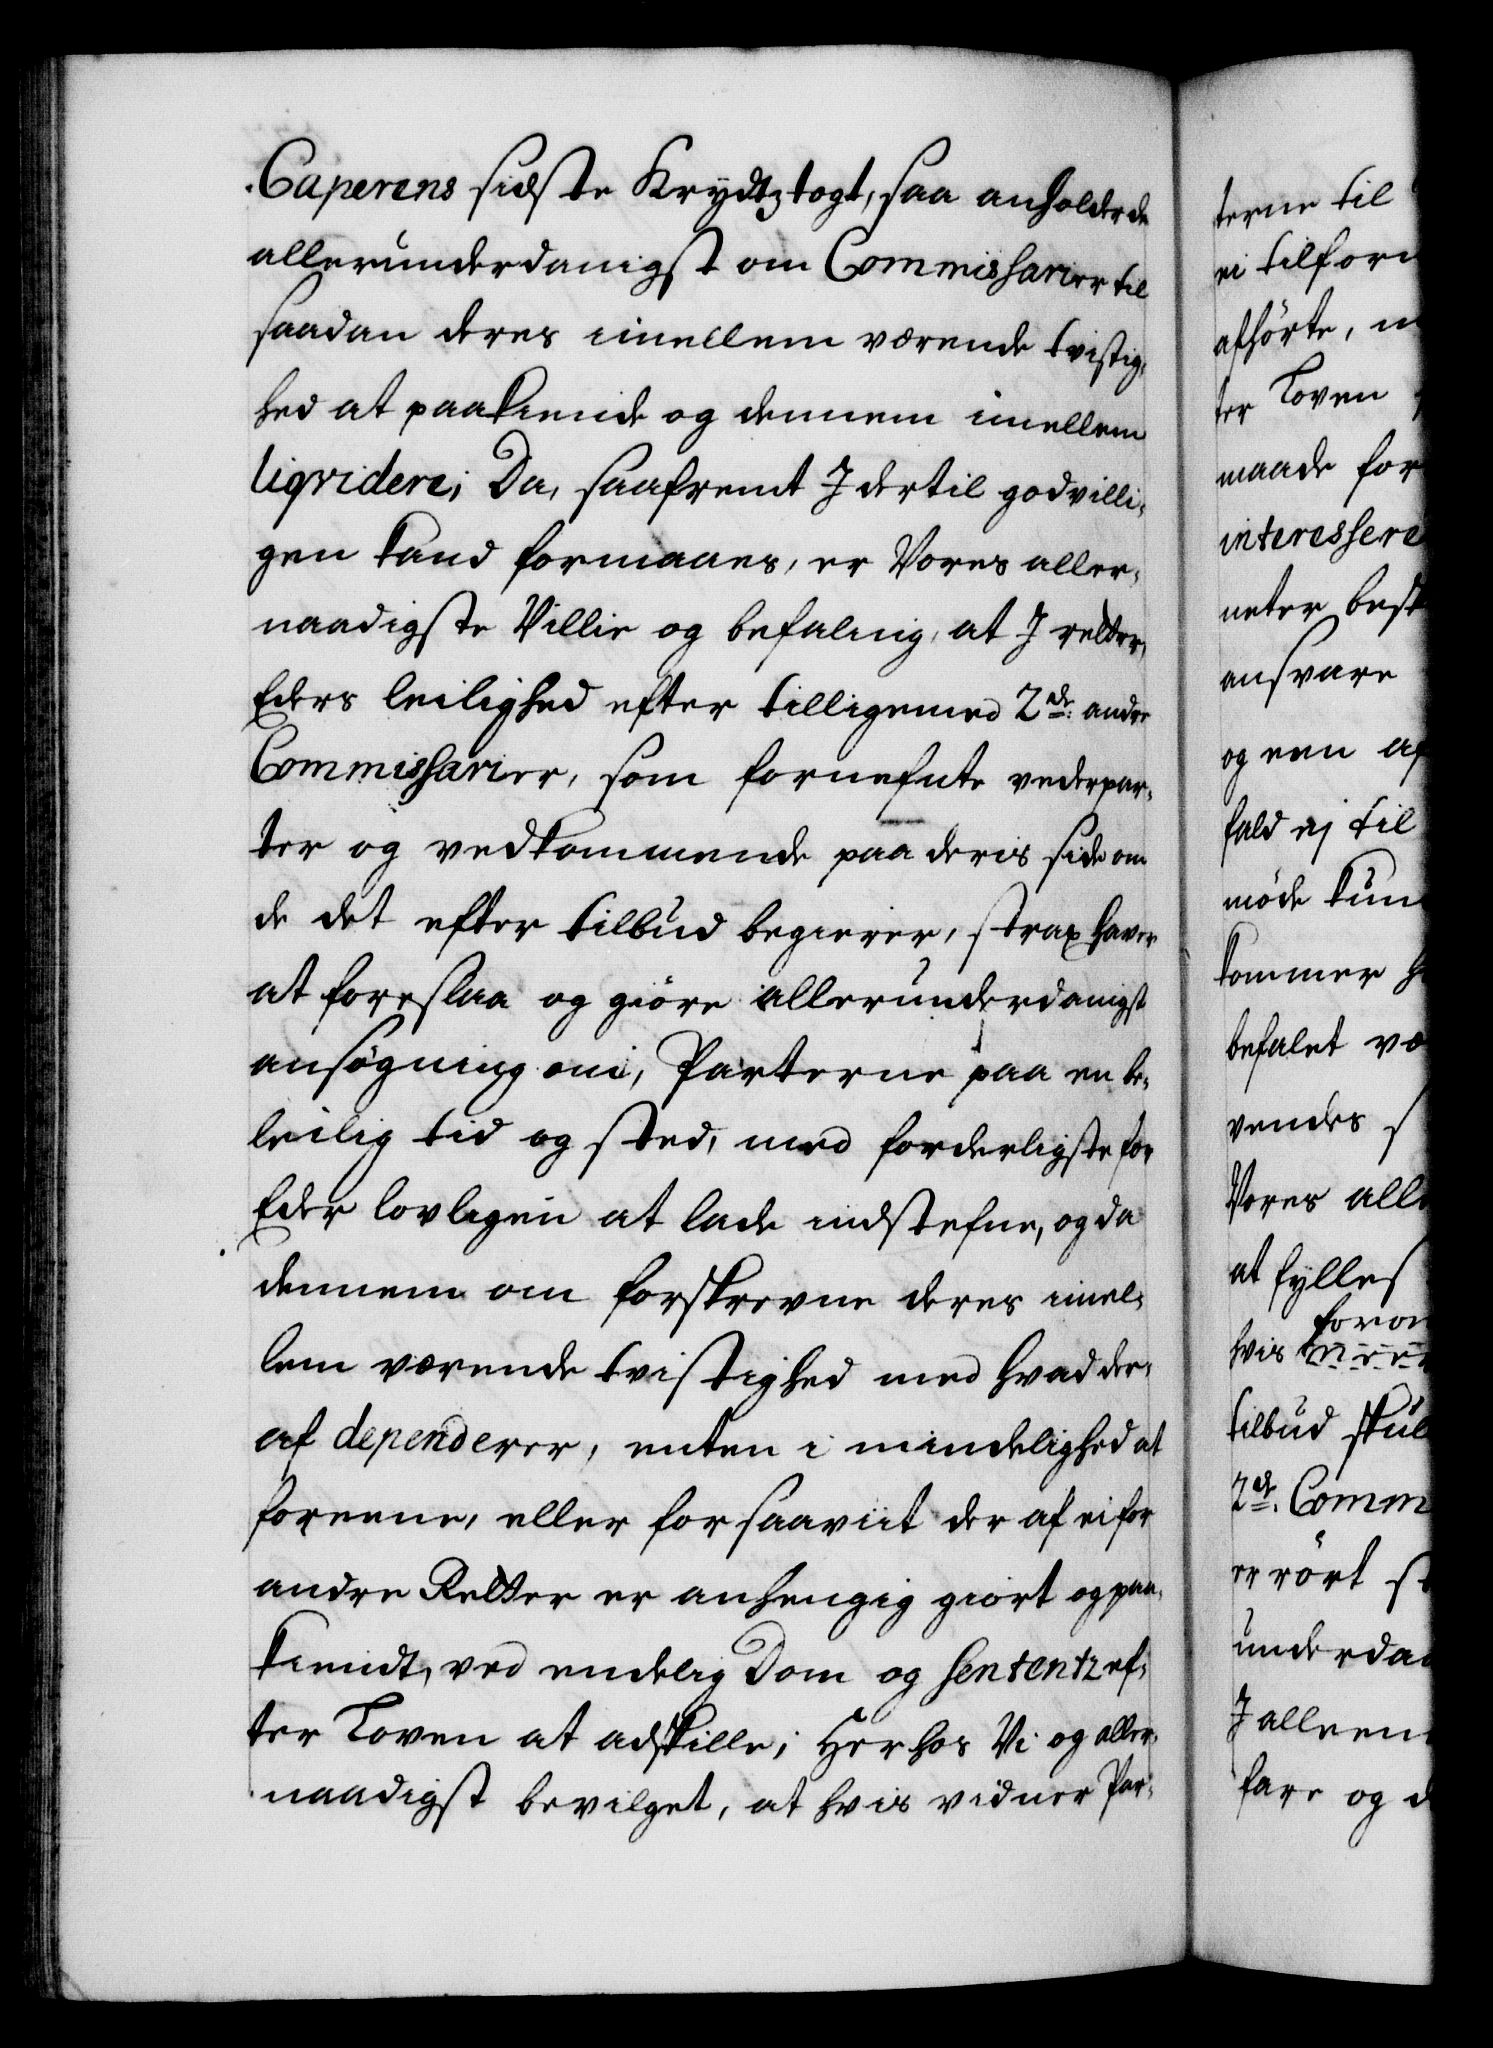 Caperens sidste Krydtztogt, saa anholder de
allerunderdanigst om Commissarier til
saadan deres imellem værende tvistig¬
hed at paakiende og dennem imellem
liqvidere; Da, saafremt I dertil godvilli¬
gen kand formaaes, er Vores aller¬
naadigste Villie og befaling, at I retter,
Eders leilighed efter tilligemed 2de: andre
Commissarier, som fornefnte vederpar¬
ter og vedkommende paa deris side om
de det efter tilbud begierer, strax haver
at foreslaa og giöre allerunderdanigst
ansögning om, Parterne paa en be¬
leilig tid og sted, med forderligste for
Eder lovligen at lade indstefne, og da
dennem om forskrevne deres imel¬
lem værende tvistighed med hvad der¬
af dependerer, enten i mindelighed at
foreene, eller for saaviit der af ei for
andre Retter er anhengig giort og paa¬
kiendt, ved endelig Dom og Sententz ef¬
ter Loven at adskille; Herhos Vi og aller¬
naadigst bevilget, at hvis vidner Par¬
terne til
ei tilforn
afhörte,
ter Loven
maade for
interessere
neter best
ansvare
og een af
fald ej til
möde kun
kommer
befalet væ
vendes
Vores alle
at fylles
foron
hvis
tilbud skul
2de. Comm
er rört
underdan
I alleen
fare og d